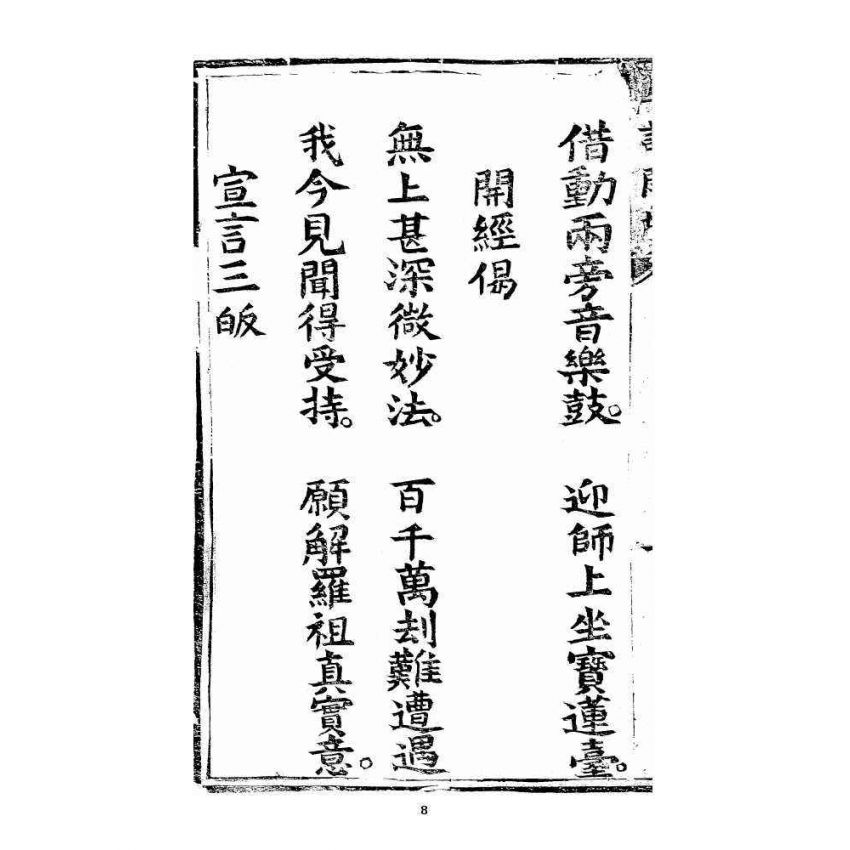 借動兩旁音樂鼓。 迎師上坐寶蓮臺。
開經偈
無上甚深微妙法。 百千萬刦難遭遇
我今見聞得受持。 願解羅祖真實意。
宣言三皈
8